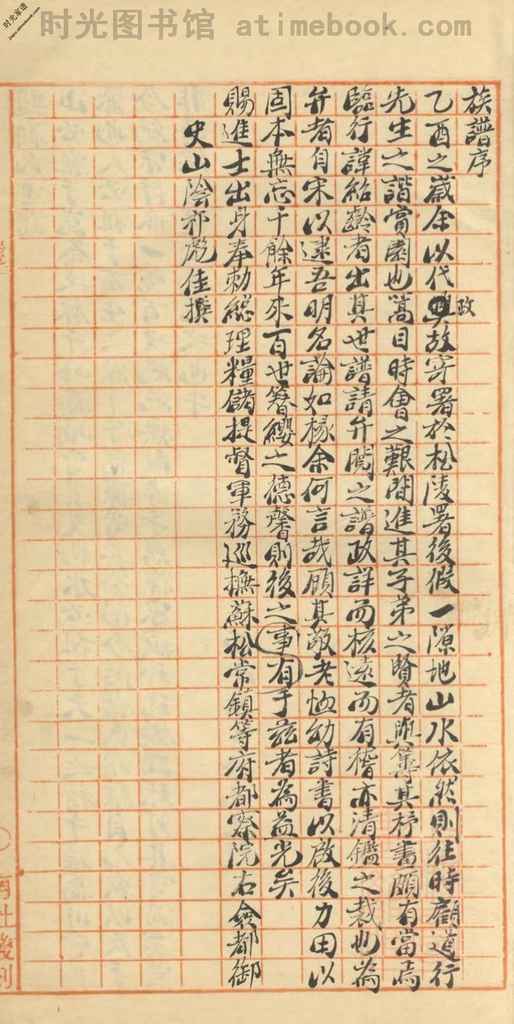 时光图书馆 atimebook.com
族譜序
乙酉之歲余以代政故寄署於松陵署後假一隙地山水依然則往時顧道行
先生之諧賞園也蒿目時會之艱間進其子弟之賢者與籌其杼書頗有當焉
臨行諱紹齡者出其世譜請弁閱之譜政詳而核遠而有稽亦清鑑之裁也為
弁者自宋以逮吾明名論如椽余何言哉願其敬老恤幼詩書以啟後力田以
固本無忘千餘年來百世簪纓之德馨則後之事有于茲者為益光矣
賜進士出身奉勅總理糧儲提督軍務巡撫蘇松常鎮等府都察院右僉都御
史山陰祁彪佳撰